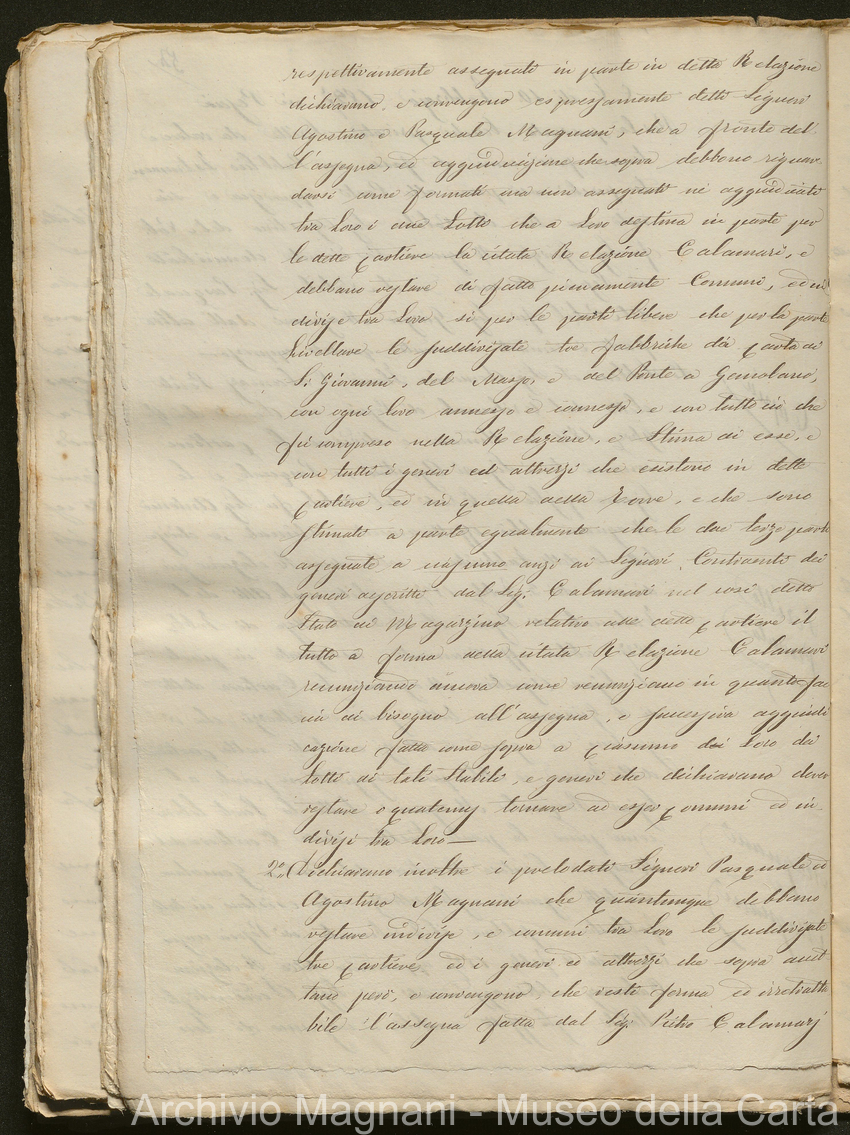 respettivamente assegnati in parte in dette Relazione
dichiarano, e convengono espressamente detti Signori
Agostino e Pasquale Magnani, che a fronte del-
l'assegna, ed aggiudicazione che sopra debbono riguar-
darsi come formati ma non assegnati nè aggiudicati
tra Loro i due Lotti che a Loro destina in parte per
le dette Cartiere la citata Relazione Calamari, e
debbano restare di fatto pienamente Comuni, ed in
divise tra Loro sì per le parti libere che per la parte
Livellare le suddivisate tre fabbriche di Carta di
S. Giovanni, del Masso, e del Ponte a
con ogni loro annesso e connesso, e con tutto ciò che
fù compreso nella Relazione, e Stima di esse, e
con tutti i generi ed attrezzi che esistono in dette
Cartiere, ed in quella della Torre, e che sono
stimati a parte egualmente che le due terze parti
assegnate a ciascuno anzi ai Signori Contraenti dei
generi ascritti dal Sig. Calamari nel così detto
Stato di Magazzino relativo alle dette Cartiere il
tutto a forma della citata Relazione Calamari
renunziando ancora come renunziano in quanto fac
cia di bisogno all'assegna, e successiva aggiudi
cazione fatta come sopra a ciascuno di Loro dei
Lotti di tali Stabili, e generi che dichiarano dover
restare e quatenus tornare ad esser Comuni ed in-
divisi tra Loro —
2.° Dichiarano inoltre i prelodati Signori Pasquale ed
Agostino Magnani che quantunque debbano
restare indivise, e comuni tra Loro le suddivisate
tre Cartiere ed i generi ed attrezzi che sopra
però, e convengono che resti ferma ed irretratta
bile l'assegna fatta dal Sig. Pietro Calamarj
Archivio Magnani - Museo della Carta